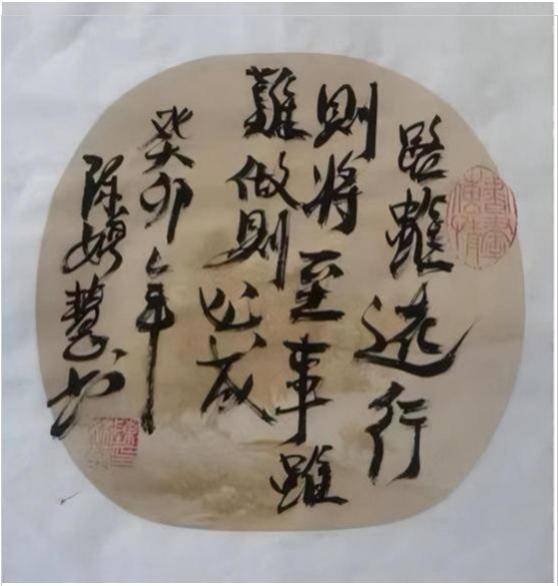 路雖遠行
則將至事雖
難做則必成
癸卯年
陈慧书